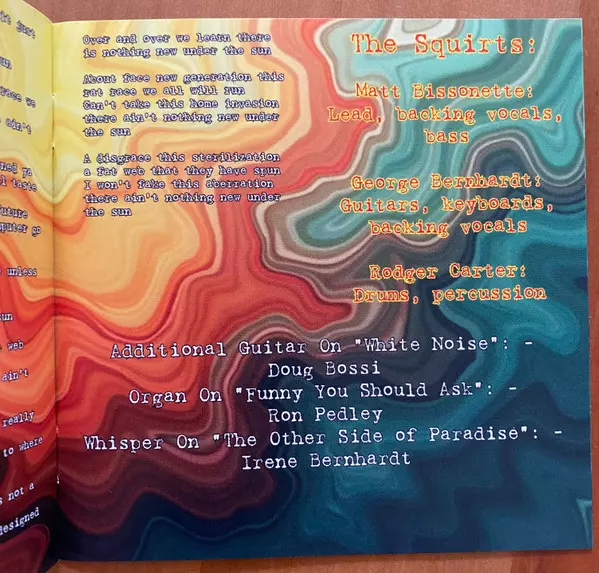 just
un
race we
ain't
ned ya
l taste
future
puter go
unless
sun
web
ain't
really
to where
s not a
designed
Over and over we learn there
is nothing new under the sun
About face new generation this
rat race we all will run
Can't take this home invasion
there ain't nothing new under
the sun
A disgrace this sterilization
a fat web that they have spun
I won't fake this aberration
there ain't nothing new under
the sun
The Squirts:
Matt Bissonette:
Lead, backing vocals,
bass
George Bernhardt:
Guitars, keyboards,
backing vocals
Rodger Carter:
Drums, percussion
Additional Guitar On "White Noise": -
Doug Bossi
Organ On "Funny You Should Ask": -
Ron Pedley
Whisper On "The Other Side of Paradise": -
Irene Bernhardt